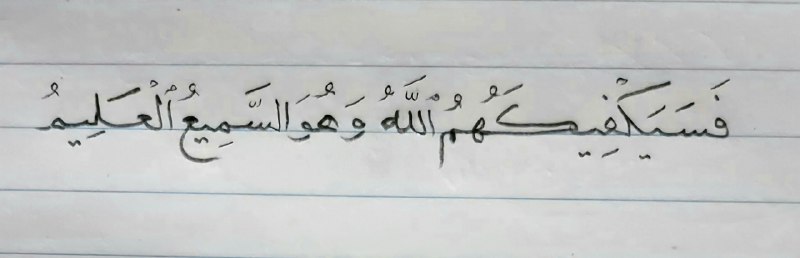 فَسَيَكْفِيكَهُمُ ٱللَّهُ وَهُوَ السَّمِيعُ ٱلْعَلِيمُ